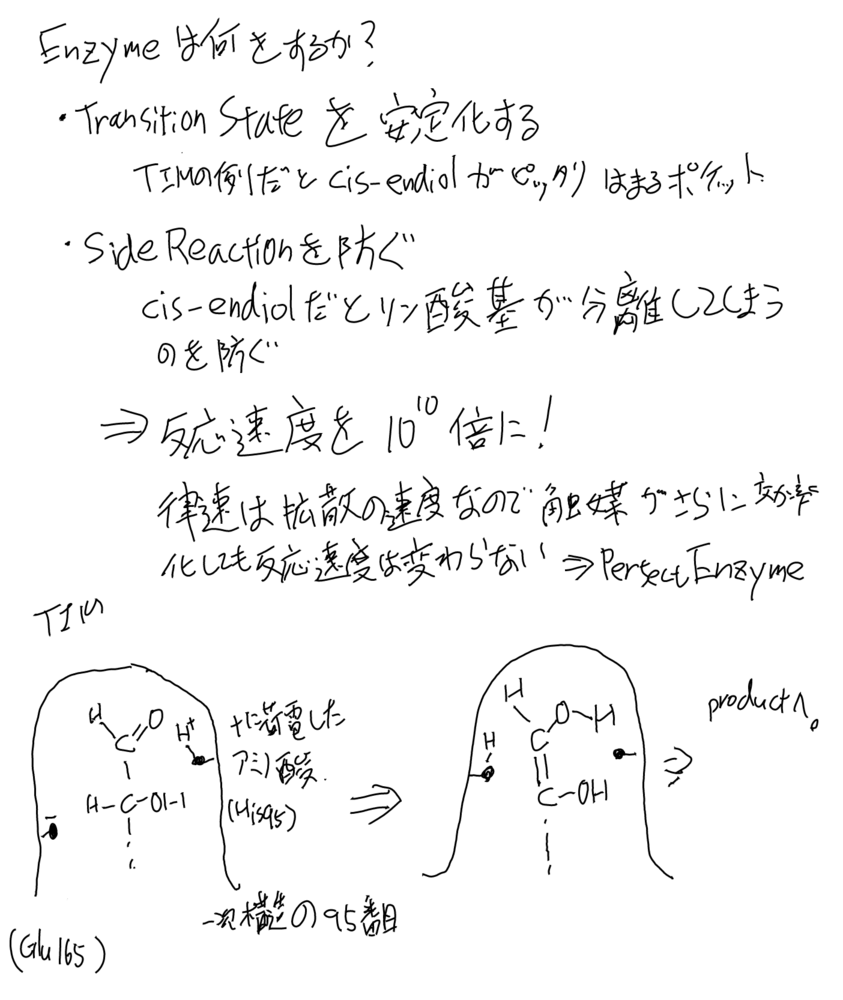 Enzymeは何をするか?
・Transition Stateを安定化する
TIMの例だとcis-endiolがピッタリはまるポケット
・Side Reactionを防ぐ
cis-endiolだとリン酸基が分離してしまう
のを防ぐ
⇒反応速度を10^10倍に!
律速は拡散の速度なので触媒がさらに効率
化しても反応速度は変わらない ⇒ Perfect Enzyme
TIM
H
C
O
H+
H-C-OH
+に荷電した
アミノ酸.
(His95)
一次構造の95番目
(Glu165)
⇒
H
O-H
H
C
C-OH
⇒
productへ。